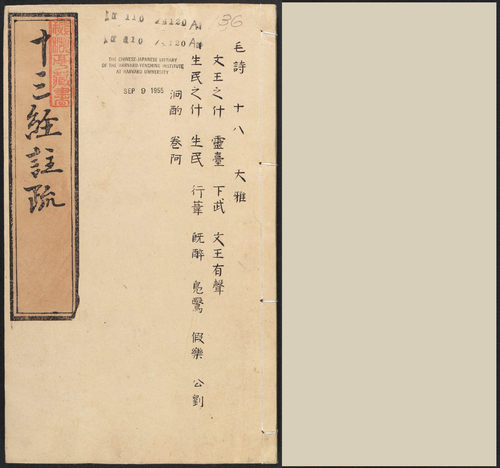 36
毛詩 十八 大雅
文王之什 靈臺 下武 文王有聲
生民之什 生民 行葦 既醉 鳧鷖 假樂 公劉
泂酌 卷阿
THE CHINESE-JAPANESE LIBRARY
OF THE HARVARD-YENCHING INSTITUTE
AT HARVARD UNIVERSITY
SEP 9 1955
十三經註疏